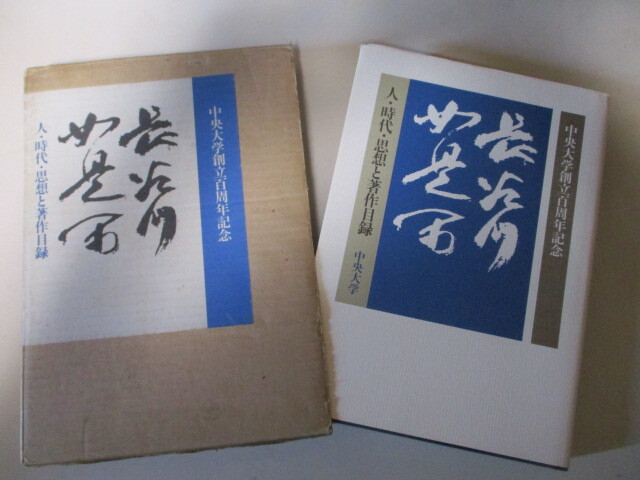 中央大学創立百周年記念
長谷川
如是閑
人・時代・思想と著作目録
中央大学創立百周年記念
長谷川
如是閑
人・時代・思想と著作目録
中央大学